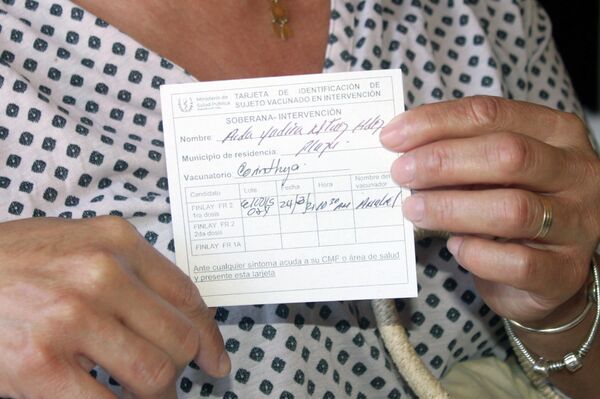 Ministerio de
Salud Pública
TARJETA DE IDENTIFICACIÓN DE
SUJETO VACUNADO EN INTERVENCIÓN
SOBERANA- INTERVENCIÓN
Nombre Aida Yadira
Municipio de residencia: Playa.
Vacunatorio
Candidato Lote Fecha Hora Nombre del vacunador
FINLAY FR 2 1ra dosis 24/3/21 10 30 AM
FINLAY FR 2 2da dosis
FINLAY FR 1A
Ante cualquier síntoma acuda a su CMF o área de salud
y presente esta tarjeta